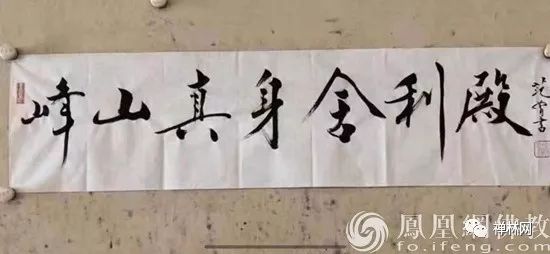 峰山真身舍利殿
鳳凰網佛教
fo.ifeng.com
禅林网